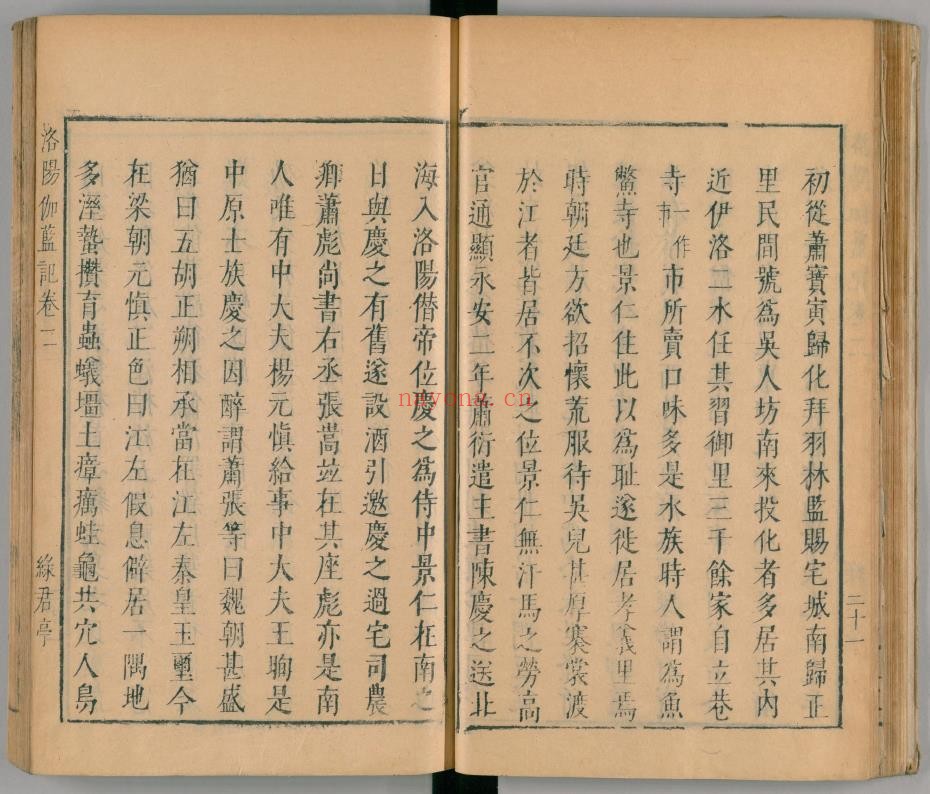 二十一
初從蕭寶寅歸化拜羽林監賜宅城南歸正
里民間號爲吳人坊南來投化者多居其內
近伊洛二水任其習御里三千餘家自立巷
寺一作市市所賣口味多是水族時人謂爲魚
鱉寺也景仁住此以爲恥遂徙居孝義里焉
時朝廷方欲招懷荒服待吳兒甚厚褰裳渡
於江者皆居不次之位景仁無汗馬之勞高
官通顯永安二年蕭衍遣主書陳慶之送北
海入洛陽僭帝位慶之爲侍中景仁在南之
日與慶之有舊遂設酒引邀慶之過宅司農
卿蕭彪尚書右丞張嵩並在其座彪亦是南
人唯有中大夫楊元愼給事中大夫王眴是
中原士族慶之因醉謂蕭張等曰魏朝甚盛
猶曰五胡正朔相承當在江左秦皇玉璽今
在梁朝元愼正色曰江左假息僻居一隅地
多溼蟄攢育蟲蟻壃土瘴癘蛙黽共穴人鳥
洛陽伽藍記卷二 綠君亭
nayona.cn